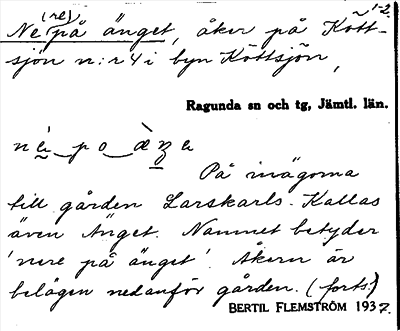 1-2.
Ne(re) på änget, åker på Kött-
sjön n:r 4 i byn Köttsjön,
Ragunda sn och tg, Jämtl. län.
På inägorna
till gården Larskarls. Kallas
även Änget. Namnet betyder
'nere på änget'. Åkern är
belägen nedanför gården. (forts.)
BERTIL FLEMSTRÖM 1937.